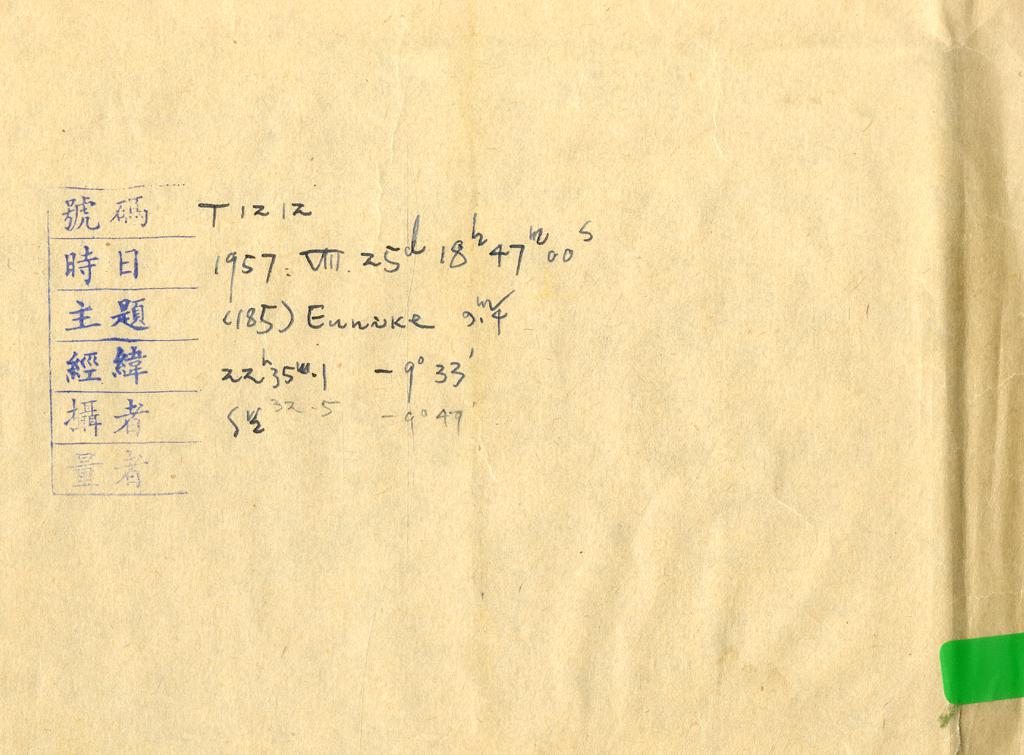 號碼 T1212
時日 1957. VIII. 25d 18h 47m 00s
主題 (185) Eunike 9.m4
經緯 22h35m.1 -9°33'
攝者 32.5 -9°47'
量者